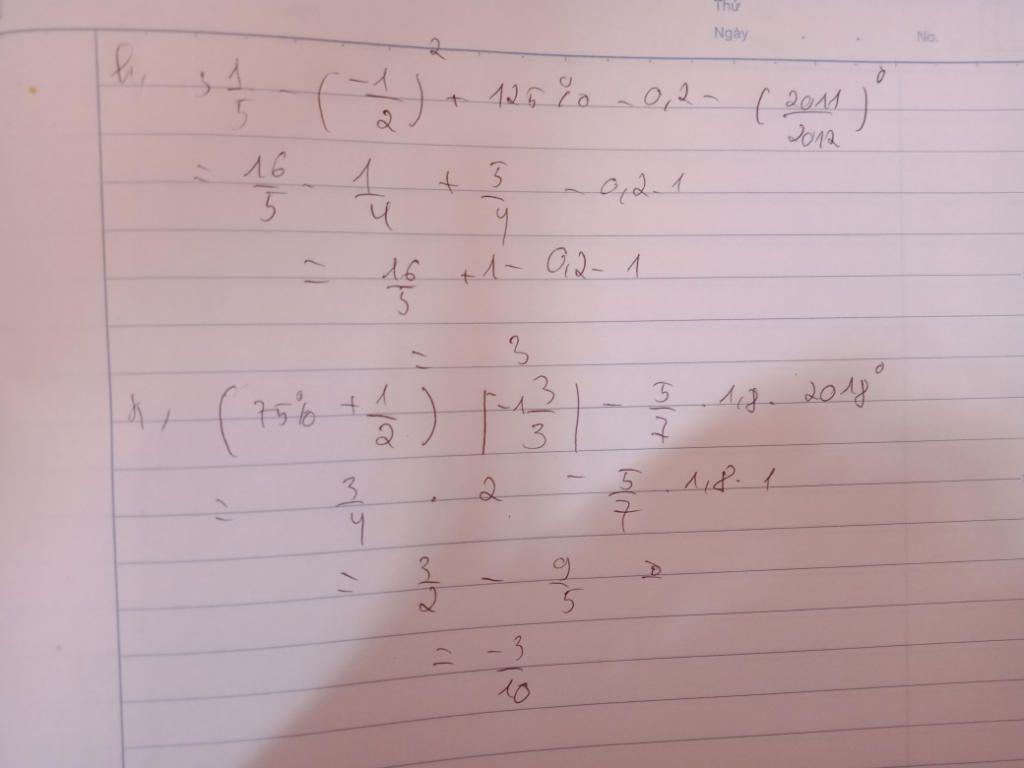 Thứ
Ngày . . No.
h, 3 1/5 - (-1/2)² + 125% - 0,2 - (2011/2012)⁰
= 16/5 - 1/4 + 5/4 - 0,2 - 1
= 16/5 + 1 - 0,2 - 1
= 3
k, (75% + 1/2) |-1 3/3| - 5/7 . 1,8 . 2018⁰
= 3/4 . 2 - 5/7 . 1,8 . 1
= 3/2 - 9/5
= -3/10